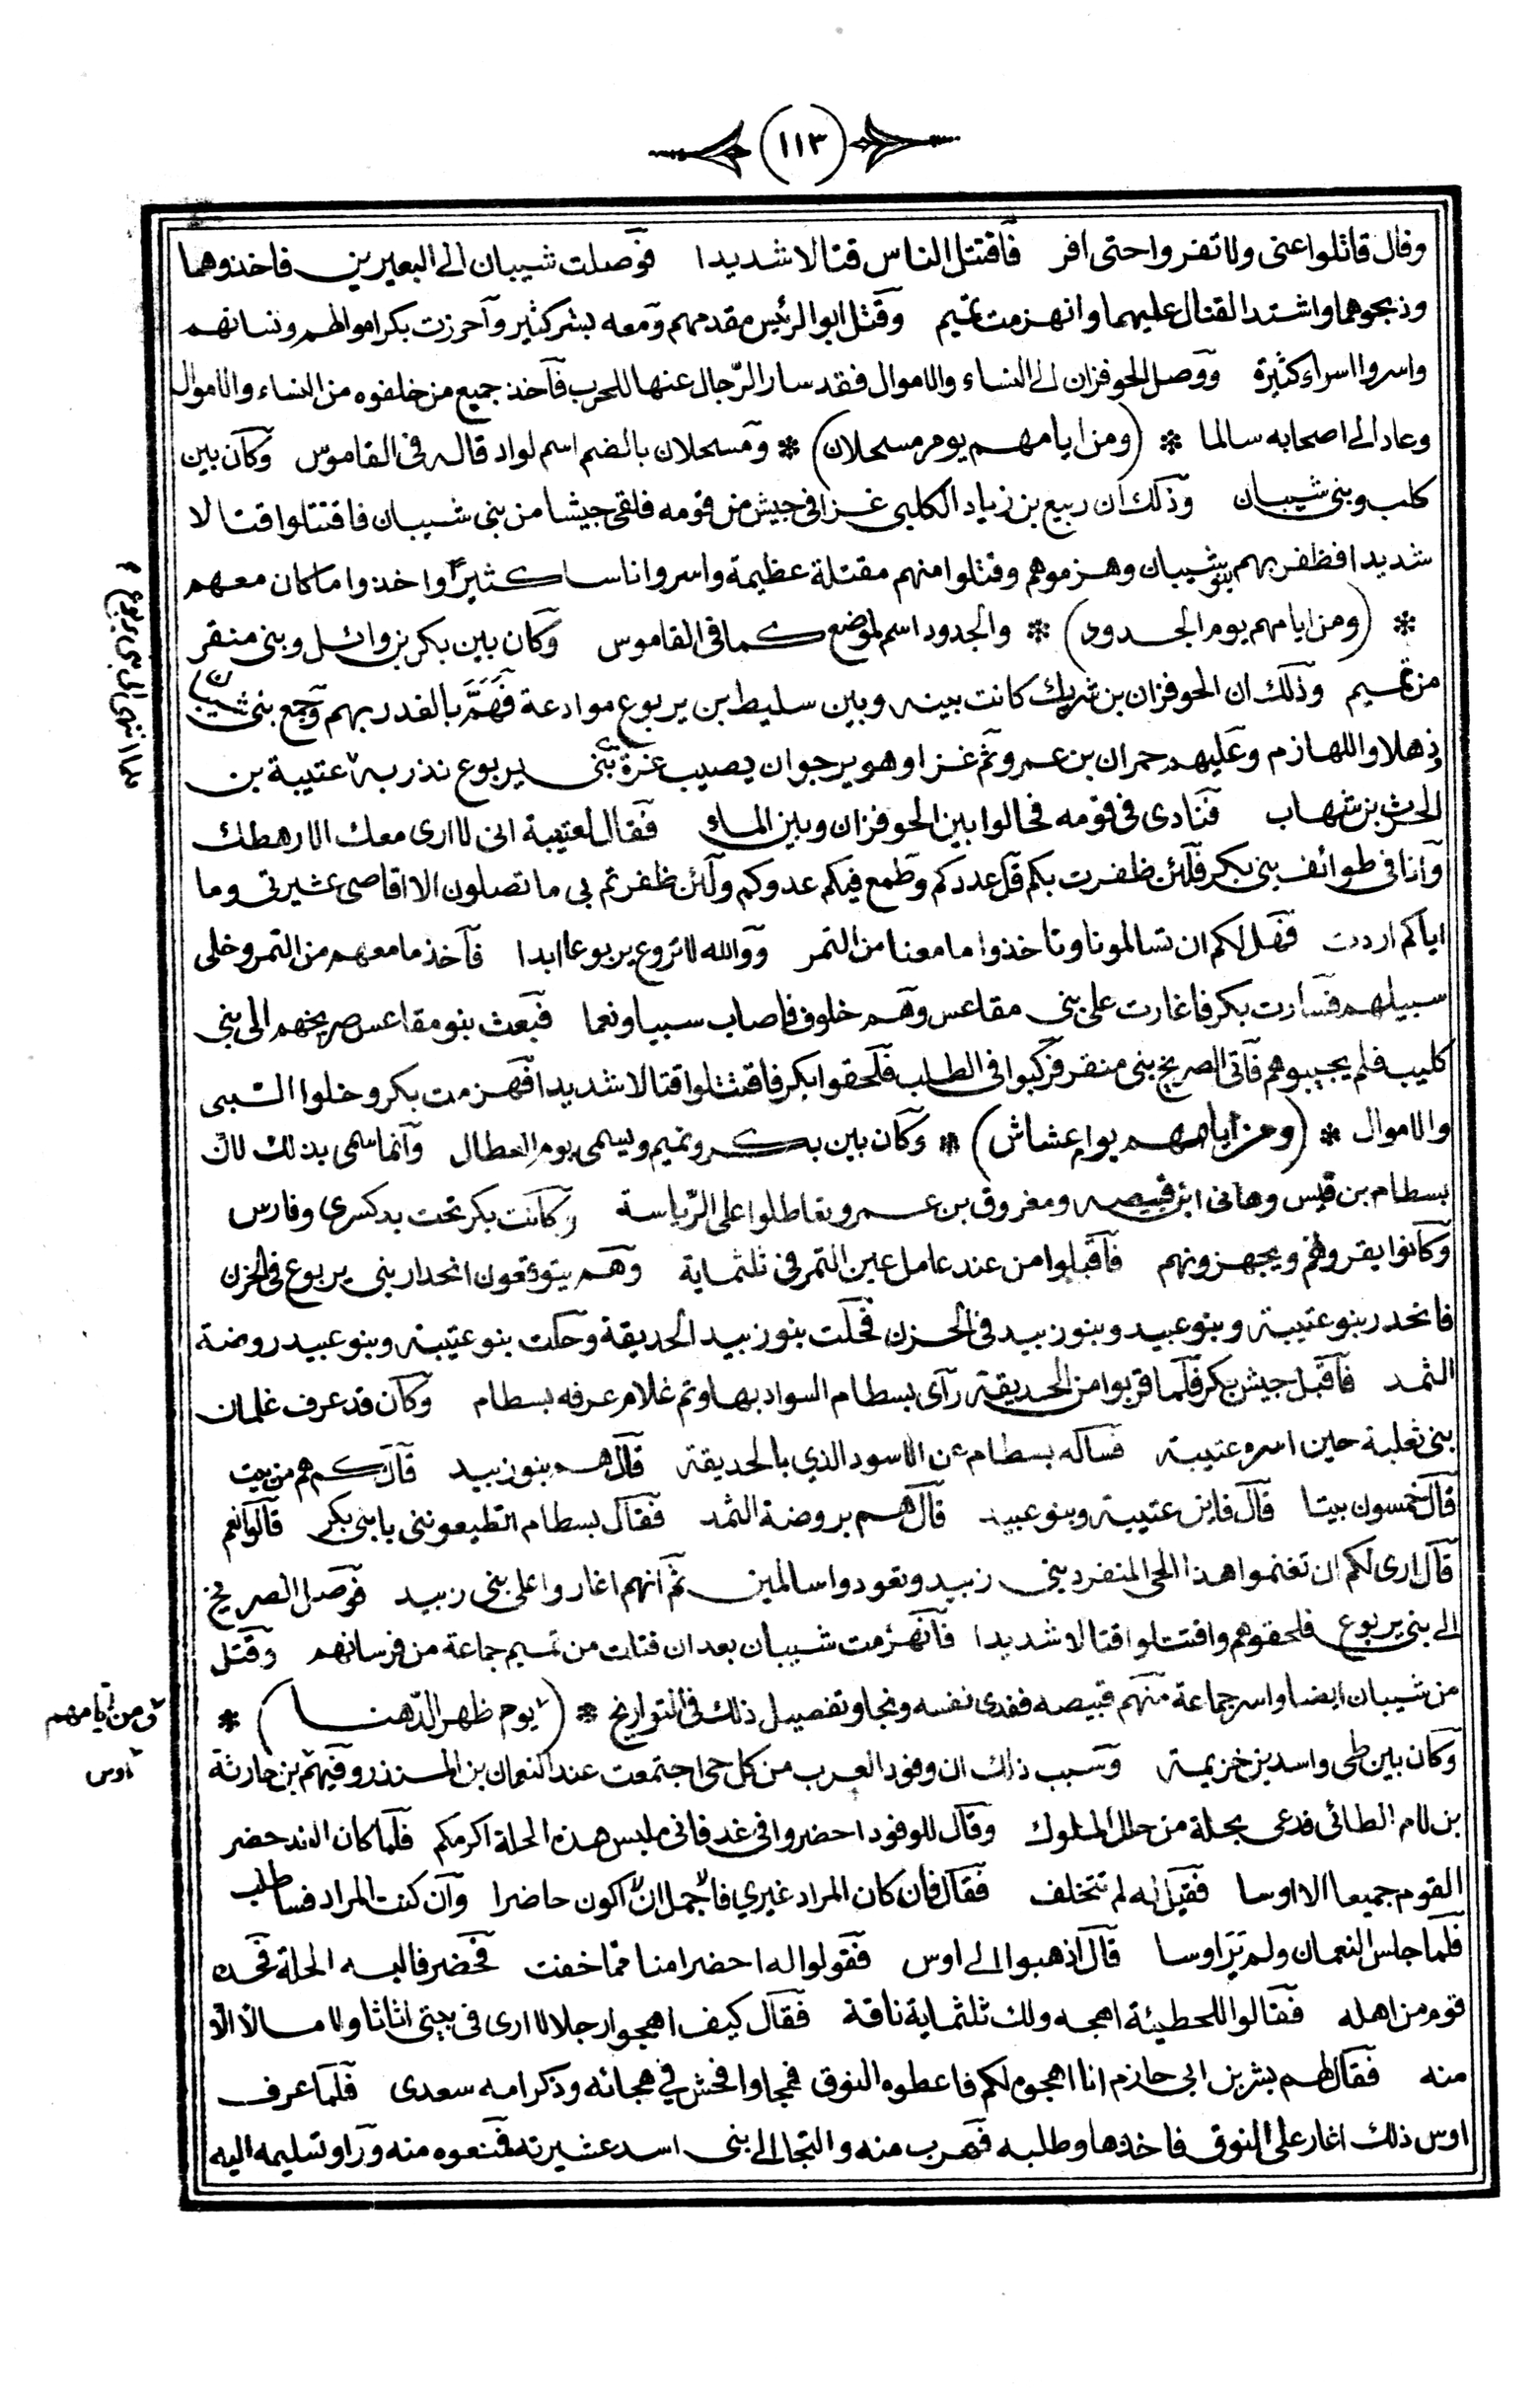 ١١٣
وقال قاتلوا عنى ولا تفروا حتى افر فاقتتل الناس قتالا شديدا فوصلت شيبان الى البعيرين فاخذوهما
وذبحوهما واشتد القتال عليهما وانهزمت تميم وقتل ابو الرئيس مقدمهم ومعه بشر كثير وآحرزت بكر اموالهم ونسانهم
واسروا اسراء كثيرة ووصل الحوفزان الى النساء والاموال فقد سار الرّجال عنها للحرب فآخذ جميع من خلفوه من النساء والاموال
وعاد الى اصحابه سالما * (ومن ايامهم يوم مسحلان) * ومسحلان بالضم اسم لواد قاله فى القاموس وكان بين
كلب وبنى شيبان وذلك ان ربيع بن زياد الكلبى غزا فى جيش من قومه فلقى جيشا من بنى شيبان فاقتتلوا قتالا
شديدا فظفر بهم بنو شيبان وهزموهم وقتلوا منهم مقتلة عظيمة واسروا ناسا كثيرًا واخذوا ما كان معهم
* (ومن ايامهم يوم الجدود) * والجدود اسم لموضع كما فى القاموس وكان بين بكر بن وائل وبنى منقر
من تميم وذلك ان الحوفزان بن شريك كانت بينه وبين سليط بن يربوع موادعة فَهَمَّ بالغدر بهم وجمع بنى شيبان
وذهلا واللهازم وعليهم حمران بن عمرو ثم غزا وهو يرجو ان يصيب غرة بنى يربوع نذر به عتيبة بن
الحرث بن شهاب فنادى فى قومه فحالوا بين الحوفزان وبين الماء فقال لعتيبة انى لا ارى معك الا رهطك
وآنا فى طوائف بنى بكر فلئن ظفرت بكم قل عددكم وطمع فيكم عدوكم ولئن ظفرتم بى ما تصلون الا اقاصى عشيرتى وما
اياكم اردت فهل لكم ان تسالمونا وتاخذوا ما معنا من التمر ووالله لا نروع يربوعا ابدا فآخذ ما معهم من التمر وخلى
سبيلهم فسارت بكر فاغارت على بنى مقاعس وهم خلوف فاصاب سبيا ونعما فبعث بنو مقاعس صريخهم الى بنى
كليب فلم يجيبوهم فآتى الصريخ بنى منقر فركبوا فى الطلب فلحقوا بكر فاقتتلوا قتالا شديدا فهزمت بكر وخلوا السّبى
والاموال * (ومن ايامهم يوم اعشاش) * وكان بين بكر وتميم ويسمى يوم العظال وآنما سمى بذلك لان
بسطام بن قيس وهانى ابن قبيصه ومفروق بن عمرو تعاظلوا على الرّياسة وكانت بكر تحت يد كسرى وفارس
وكانوا يقرونهم ويجهزونهم فآقبلوا من عند عامل عين التمر فى ثلثماية وهم يتوقعون انحدار بنى يربوع فى الحزن
فانحدر بنو عتيبة وبنو عبيد وبنو زبيد فى الحزن فحلت بنو زبيد الحديقة وحلت بنو عتيبة وبنو عبيد روضة
الثمد فآقبل جيش بكر فلما قربوا من الحديقة رآى بسطام السواد بها وثم غلام عرفه بسطام وكان قد عرف غلمان
بنى ثعلبة حين اسره عتيبة فساله بسطام عن الاسود الذي بالحديقة قال هم بنو زبيد قال كم هم من بيت
قال خمسون بيتا قال فاين عتيبة وبنو عبيد قال هم بروضة الثمد فقال بسطام اتطيعوننى يا بنى بكر قالوا نعم
قال ارى لكم ان تغنموا هذا الحى المنفرد بنى زبيد وتعودوا سالمين ثم آنهم اغاروا على بنى زبيد فوصل الصريخ
الى بنى يربوع فلحقوهم واقتتلوا قتالا شديدا فآنهزمت شيبان بعد ان قتلت من تميم جماعة من فرسانهم وقتل
من شيبان ايضا واسر جماعة منهم قبيصه ففدى نفسه ونجا وتفصيل ذلك فى التواريخ * (يوم ظهر الدّهنا) *
وكان بين طى واسد بن خزيمة وسبب ذلك ان وفود العرب من كل حى اجتمعت عند النعمان بن المنذر وفيهم بن حارثة
بن لام الطائى فدعى بحلة من حلل الملوك وقال للوفود احضروا فى غد فانى ملبس هذه الحلة اكرمكم فلما كان الغد حضر
القوم جميعا الا اوسا فقيل له لم تتخلف فقال فان كان المراد غيرى فالاجمل ان لا اكون حاضرا وآن كنت المراد فساطلب
فلما جلس النعمان ولم يَرَ اوسا قال آذهبوا الى اوس فقولوا له احضر امنا ممّا خفت فحضر فالبسه الحلة فحسده
قوم من اهله فقالوا للحطيئة اهجه ولك ثلثماية ناقة فقال كيف اهجو ارجلا لا ارى فى بيتى اثاثا ولا مالا الّا
منه فقال لهم بشر بن ابى حازم انا اهجوه لكم فاعطوه النوق فهجاه وافحش فى هجائه وذكر امه سعدى فلما عرف
اوس ذلك اغار على النوق فاخذها وطلبه فهرب منه والتجا الى بنى اسد عشيرته فمنعوه منه وراو تسليمه اليه
ومن ايامهم
اوس